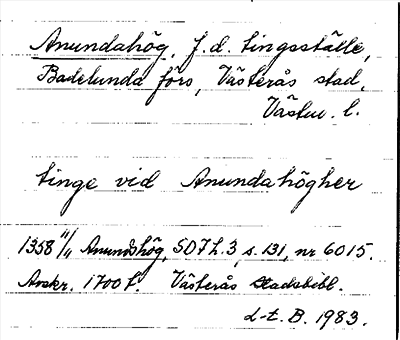 Anundahög, f.d. tingsställe,
Badelunda förs, Västerås stad,
Västm. l.
tinge vid Anundahögher
1358 11/11 Anundshög, SD 7 h. 3, s. 131, nr 6015.
Avskr. 1700 t. Västerås Stadsbibl.
L-t. B. 1983.